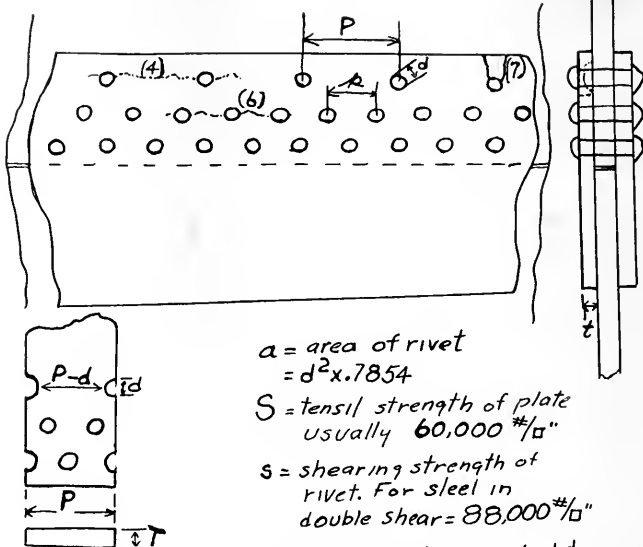 P
(4)
d
(7)
(6)
p
t
P-d
d
P
T
a = area of rivet
= d²x.7854
S = tensil strength of plate
usually 60,000 #/□"
s = shearing strength of
rivet. For sleel in
double shear = 88,000 #/□"